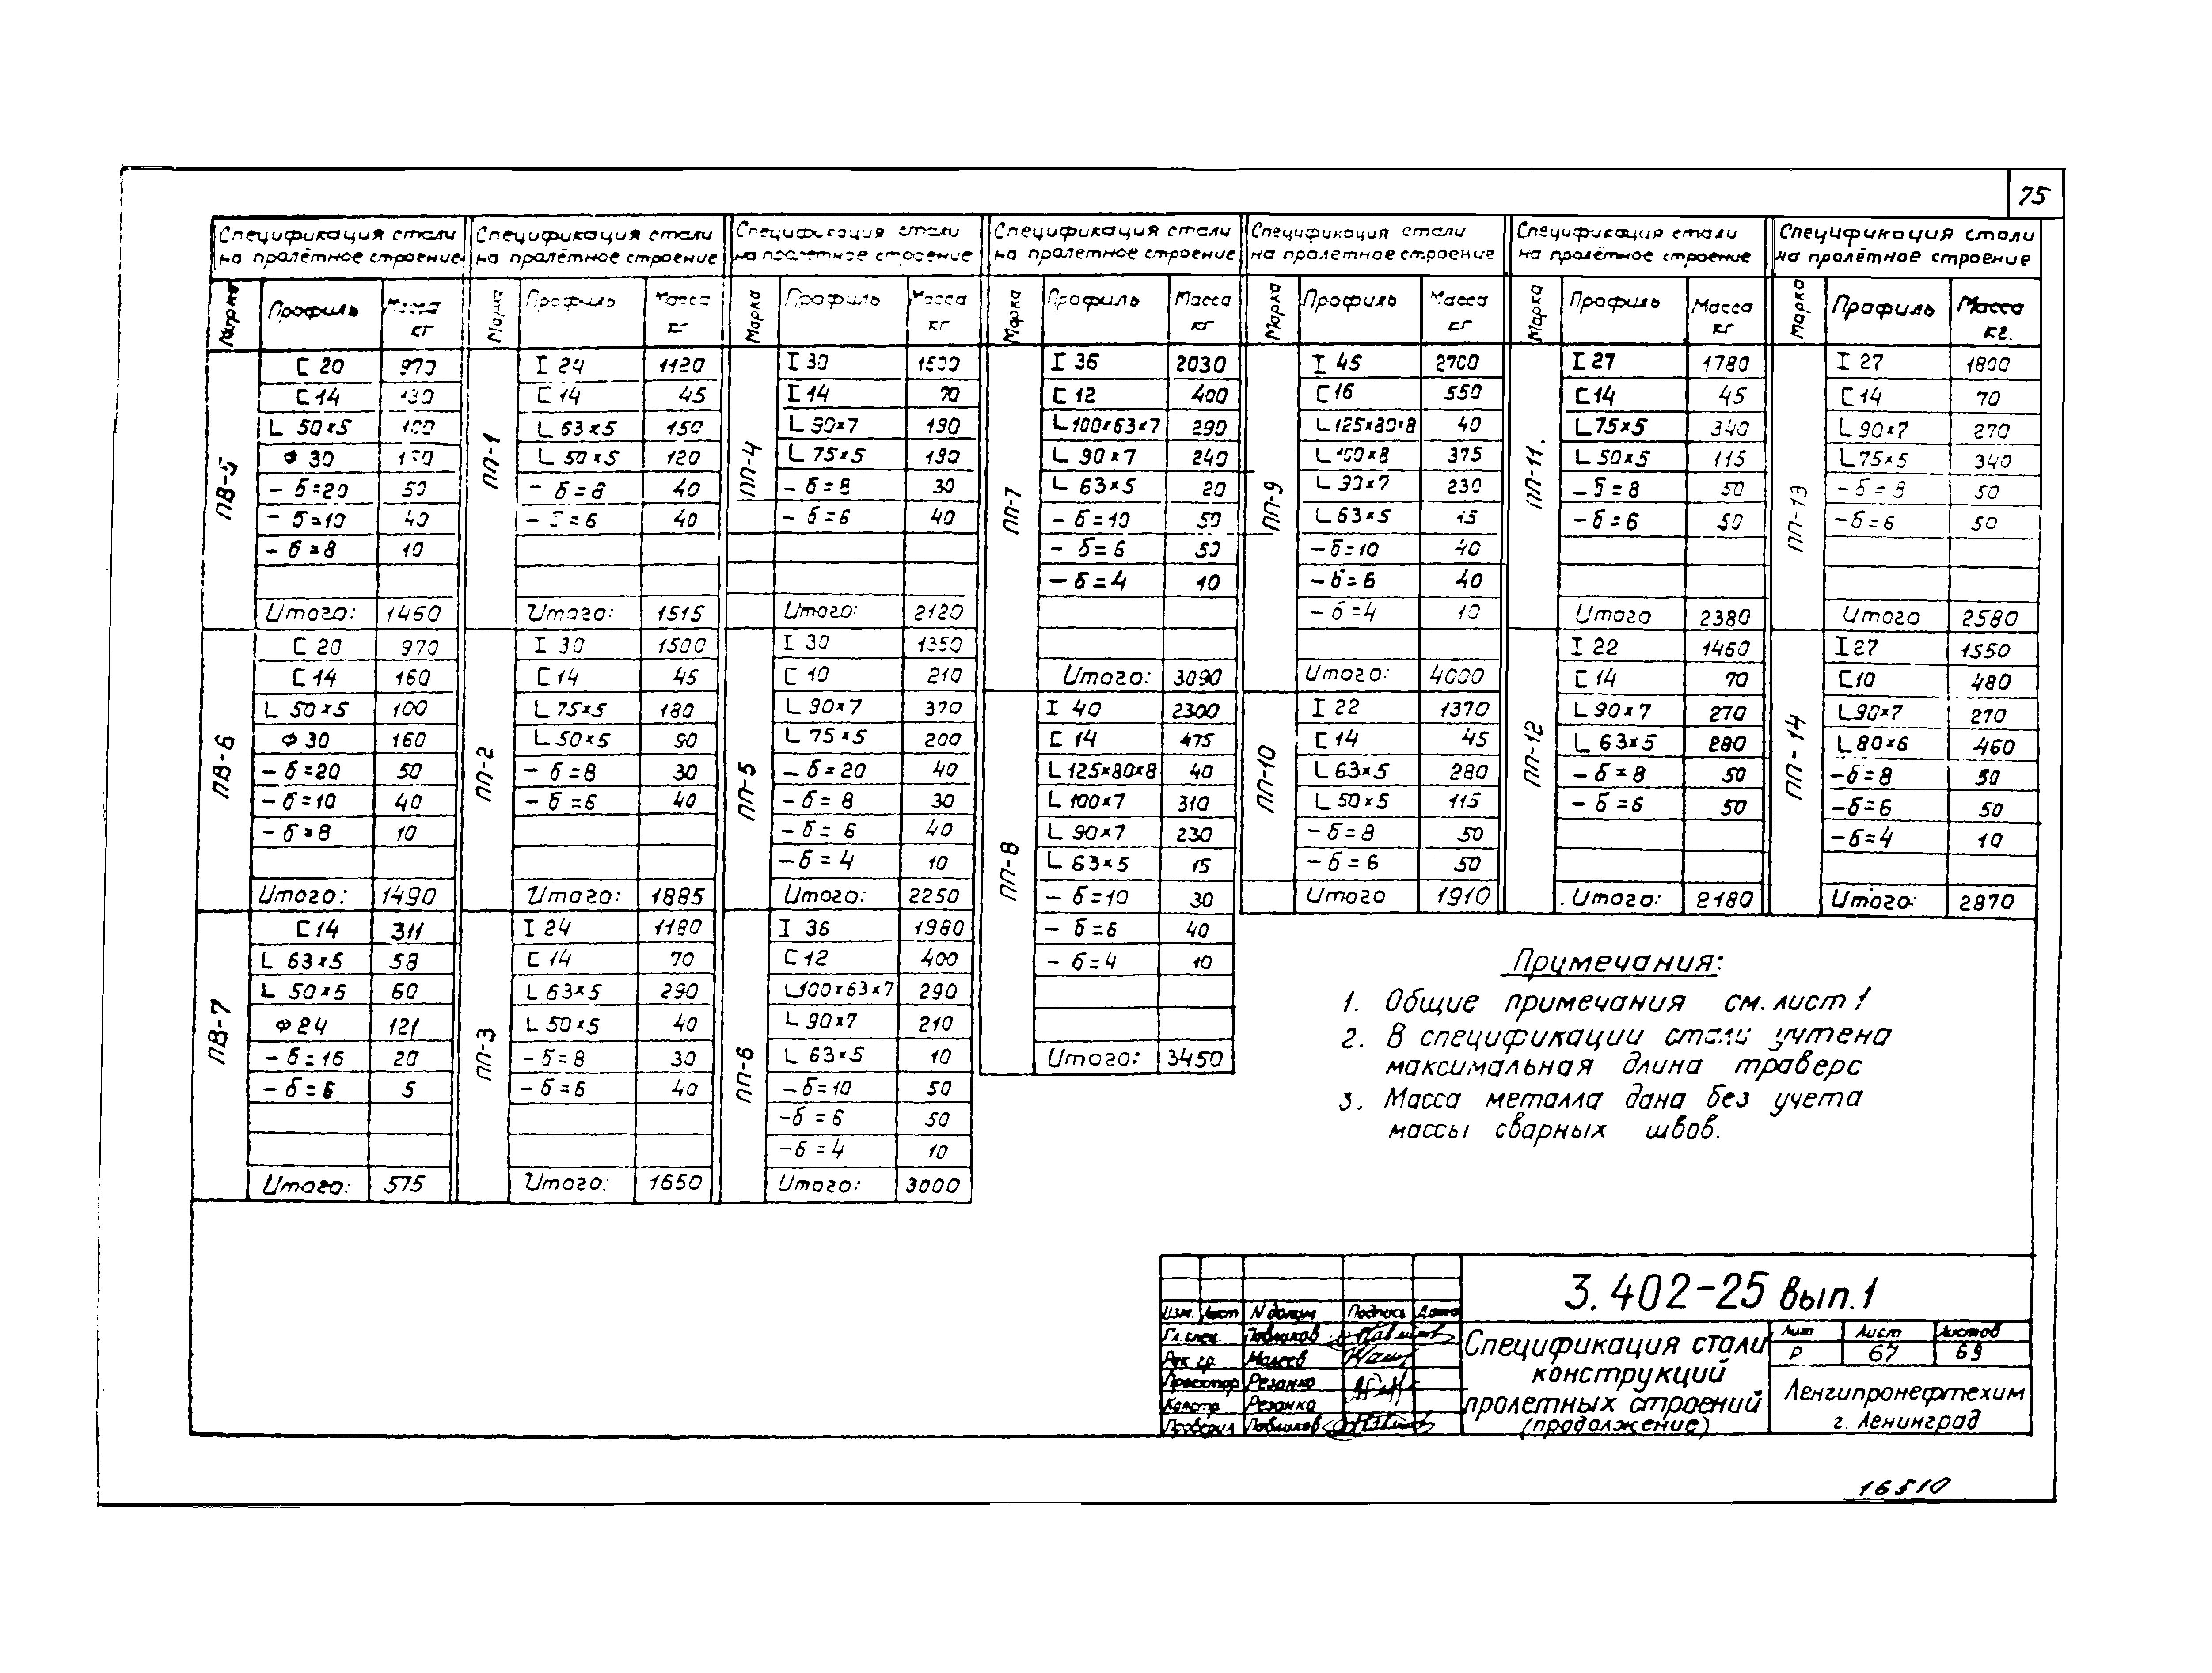 75
Спецификация стали на пролётное строение
Марка Профиль Масса кг
ПВ-5
С 20 970
С 14 130
L 50×5 100
ф 30
- δ=20 50
- δ=10 40
- δ=8 10
Итого: 1460
ПВ-6
С 20 970
С 14 160
L 50×5 100
ф 30 160
- δ=20 50
- δ=10 40
- δ=8 10
Итого: 1490
ПВ-7
С 14 311
L 63×5 58
L 50×5 60
ф 24 121
- δ=16 20
- δ=6 5
Итого: 575
Спецификация стали на пролётное строение
Марка Профиль Масса кг
ПП-1
I 24 1120
С 14 45
L 63×5 150
L 50×5 120
- δ=8 40
- δ=6 40
Итого: 1515
ПП-2
I 30 1500
С 14 45
L 75×5 180
L 50×5 90
- δ=8 30
- δ=6 40
Итого: 1885
ПП-3
I 24 1180
С 14 70
L 63×5 290
L 50×5 40
- δ=8 30
- δ=6 40
Итого: 1650
Спецификация стали на пролетное строение
Марка Профиль Масса кг
ПП-4
I 30 1500
С 14 70
L 90×7 190
L 75×5 190
- δ=8 30
- δ=6 40
Итого: 2120
ПП-5
I 30 1350
С 10 210
L 90×7 370
L 75×5 200
- δ=20 40
- δ=8 30
- δ=6 40
- δ=4 10
Итого: 2250
ПП-6
I 36 1980
С 12 400
L 100×63×7 290
L 90×7 210
L 63×5 10
- δ=10 50
- δ=6 50
- δ=4 10
Итого: 3000
Спецификация стали на пролетное строение
Марка Профиль Масса кг
ПП-7
I 36 2030
С 12 400
L 100×63×7 290
L 90×7 240
L 63×5 20
- δ=10 50
- δ=6 50
- δ=4 10
Итого: 3090
ПП-8
I 40 2300
С 14 475
L 125×80×8 40
L 100×7 310
L 90×7 230
L 63×5 15
- δ=10 30
- δ=6 40
- δ=4 10
Итого: 3450
Спецификация стали на пролетное строение
Марка Профиль Масса кг
ПП-9
I 45 2700
С 16 550
L 125×80×8 40
L 100×8 375
L 90×7 230
L 63×5 15
- δ=10 40
- δ=6 40
- δ=4 10
Итого: 4000
ПП-10
I 22 1370
С 14 45
L 63×5 280
L 50×5 115
- δ=8 50
- δ=6 50
Итого 1910
Спецификация стали на пролётное строение
Марка Профиль Масса кг
ПП-11.
I 27 1780
С 14 45
L 75×5 340
L 50×5 115
- δ=8 50
- δ=6 50
Итого 2380
ПП-12
I 22 1460
С 14 70
L 90×7 270
L 63×5 280
- δ=8 50
- δ=6 50
Итого: 2180
Спецификация стали на пролётное строение
Марка Профиль Масса кг.
ПП-13
I 27 1800
С 14 70
L 90×7 270
L 75×5 340
- δ=8 50
- δ=6 50
Итого 2580
ПП-14
I 27 1550
С 10 480
L 90×7 270
L 80×6 460
- δ=8 50
- δ=6 50
- δ=4 10
Итого: 2870
Примечания:
1. Общие примечания см. лист 1
2. В спецификации стали учтена
максимальная длина траверс
3. Масса металла дана без учета
массы сварных швов.
3.402-25 Вып.1
Изм. Лист N докум Подпись Дата
Гл.спец. Павликов
Рук гр. Малеев
Резанко
Резанко
Проверил Павликов
Спецификация стали
конструкций
пролетных строений
(продолжение)
Лит Лист Листов
Р 67 69
Ленгипронефтехим
г. Ленинград
16510